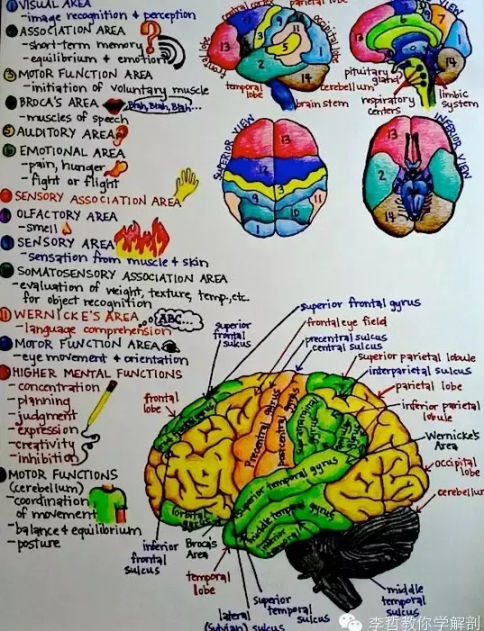 ① VISUAL AREA
-image recognition & perception
② ASSOCIATION AREA
-short-term memory
-equilibrium & emotion
③ MOTOR FUNCTION AREA
-initiation of voluntary muscle
BROCA'S AREA
Blah, Blah, Blah...
-muscles of speech
⑤ AUDITORY AREA
⑥ EMOTIONAL AREA
-pain, hunger
-fight or flight
SENSORY ASSOCIATION AREA
OLFACTORY AREA
-smell
SENSORY AREA
-sensation from muscle & skin
SOMATOSENSORY ASSOCIATION AREA
-evaluation of weight, texture, temp, etc.
for object recognition
⑪ WERNICKE'S AREA
ABC...
-language comprehension
MOTOR FUNCTION AREA
-eye movement & orientation
HIGHER MENTAL FUNCTIONS
-concentration
-planning
-judgment
-expression
-creativity
-inhibition
MOTOR FUNCTIONS
(cerebellum)
-coordination
of movement
-balance & equilibrium
-posture
parietal lobe
frontal lobe
occipital lobe
13
3
6
5
1
2
14
temporal
lobe
cerebellum
brain stem
VIEW
13
6
7
1
14
pituitary
gland
respiratory
centers
limbic
system
SUPERIOR VIEW
13
12
3
9
10
11
1
INFERIOR VIEW
13
2
14
superior frontal gyrus
frontal eye field
precentral sulcus
central sulcus
superior
frontal
sulcus
superior parietal lobule
interparietal sulcus
parietal lobe
inferior parietal
lobule
Wernicke's
Area
occipital
lobe
cerebellum
frontal
lobe
Precentral gyrus
postcentral gyrus
supramarginal
gyrus
superior temporal gyrus
middle temporal gyrus
inferior
orbital
gyrus
inferior
frontal
sulcus
Broca's
Area
temporal
lobe
lateral
(sylvian) sulcus
superior
temporal sulcus
middle
temporal
sulcus
李哲教你学解剖